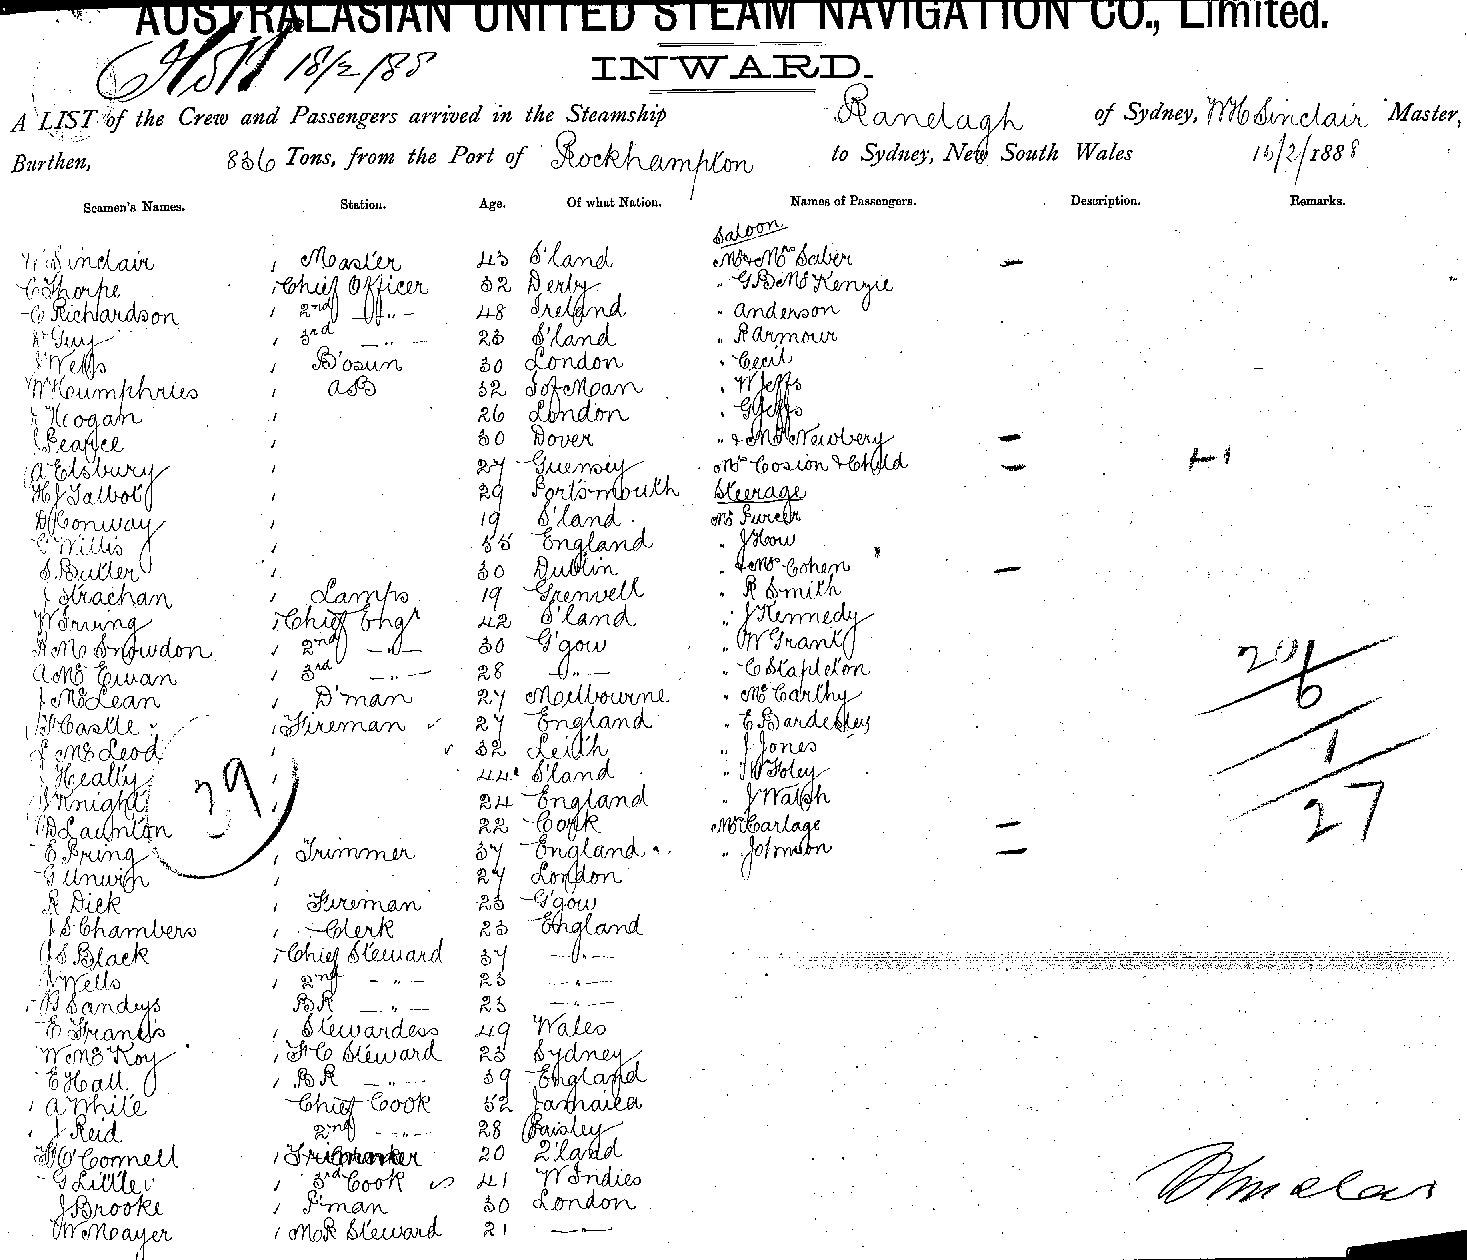 AUSTRALASIAN UNITED STEAM NAVIGATION CO., Limited.
18/2/88
INWARD.
A LIST of the Crew and Passengers arrived in the Steamship Ranelagh of Sydney, W H Sinclair Master,
Burthen, 836 Tons, from the Port of Rockhampton to Sydney, New South Wales 16/2/1888
Seamen's Names. Station. Age. Of what Nation. Names of Passengers. Description. Remarks.
Saloon
Sinclair Master 43 S'land Mr & Mrs Saber —
C Thorpe Chief Officer 32 Derby " G B McKenzie
C Richardson 2nd " 48 Ireland " Anderson
Guy 3rd — " — 23 S'land " R Armour
Wells B'osun 30 London " Cecil
W Humphries AB 32 I of Man " W Jeffs
Hogan 26 London " G Jeffs
J Pearce 30 Dover " & Mrs Newbery —
A Elsbury 27 Guensey Mrs Cosion & Child — 1
H J Talbot 29 Portsmouth Steerage
D Conway 19 S'land Mr Purcer
C Willis 55 England " J How
S. Butler 30 Dublin " & Mrs Cohen —
J Strachan Lamps 19 Grenvell " R Smith
W Irving Chief Engr 42 S'land " J Kennedy
R Mc Snowdon 2nd — " — 30 G'gow " W Grant
A Mc Ewan 3rd — " — 28 — " — " C Stapleton
J McLean D'man 27 Melbourne " McCarthy
Castle Fireman 27 England " E Bardesley
J McLeod 32 Leith " J Jones
J Heally 44 S'land " W Foley
J Knight 24 England " J Walsh
D Launton 22 Cork Mrs Carlage —
E Pring Trimmer 37 England " Johnson —
G Unwin 27 London
R Dick Fireman 23 G'gow
J S Chambers Clerk 23 England
J S Black Chief Steward 37 — " —
J Wells 2nd — " — 23 — " —
B Sandys BR — " — 23 — " —
E Francis Stewardess 49 Wales
W McKoy F C Steward 23 Sydney
E Hall BR — " — 39 England
A White Chief Cook 52 Jamaica
J Reid 2nd — " — 28 Paisley
O'Connell 20 Q'land
G Little 3rd Cook 41 W Indies
J Brooke F'man 30 London
W Mayer M R Steward 21 — " —
39
20/6
1
27